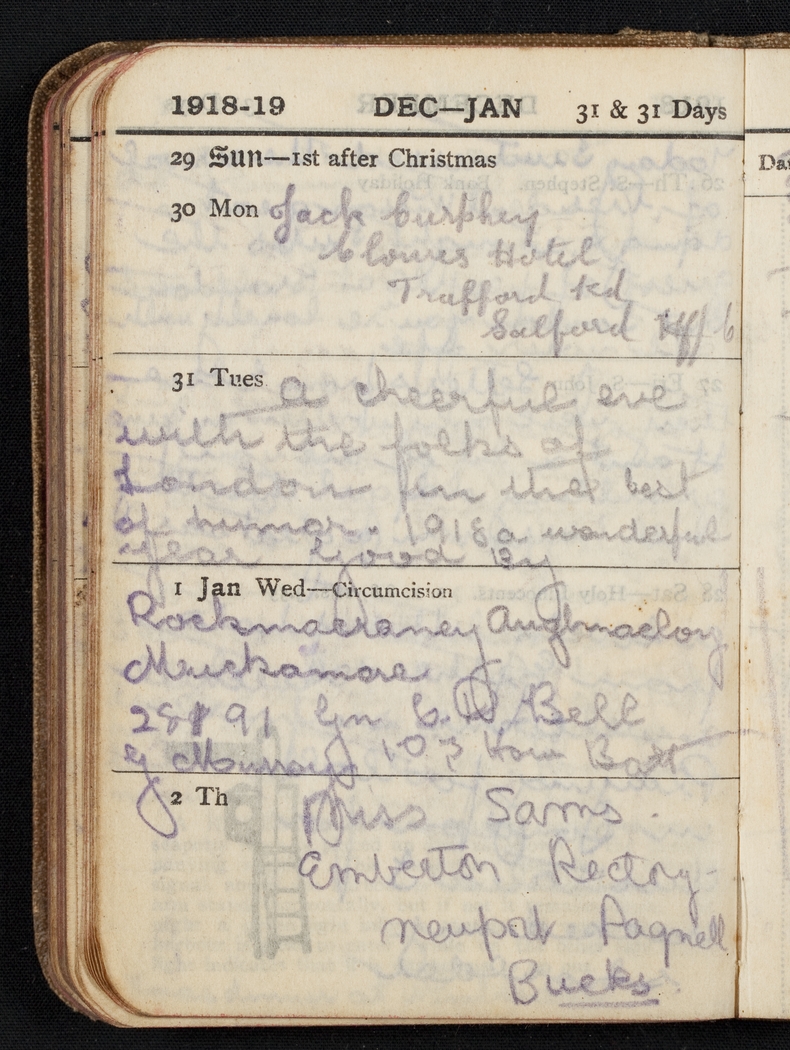 1918-19 DEC—JAN 31 & 31 Days
29 Sun—1st after Christmas
30 Mon Jack Curphey
Clowes Hotel
Trafford Rd
Salford
31 Tues a cheerful eve
with the folks of
London in the best
of humor. 1918 a wonderful
year Good By
1 Jan Wed—Circumcision
Rockmacraney Aughnacloy
Muckamore
91 Gn C. W. Bell
G Murray 103 How Batt
2 Th Miss Sams.
Emberton Rectory
Newport Pagnell
Bucks